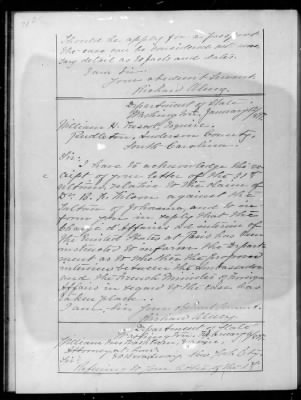 Should he apply for a passport
the case can be considered
detail as to facts and dates.
I am Sir,
Your obedient Servant,
Richard Olney.
Department of State
Washington, January
William H. Trescot, Esquire,
Pendleton, Anderson County,
South Carolina.
Sir:
I have to acknowledge the re-
ceipt of your letter of the 31st
ultimo, relative to the claim of
Dr. against the
Sultan of Johanna, and to in-
form you in reply that the
Chargé d'Affaires ad interim of
the United States at Paris has been
instructed to inform the Depart-
ment as to whether the proposed
interview between the Ambassador
and the French Minister of Foreign
Affairs in regard to the case has
taken place.
I am, Sir, Your obedient Servant,
Richard Olney
Department of State
Washington,
William
Attorney at Law,
Broadway, New York City.
Sir:
Referring to your letter of the